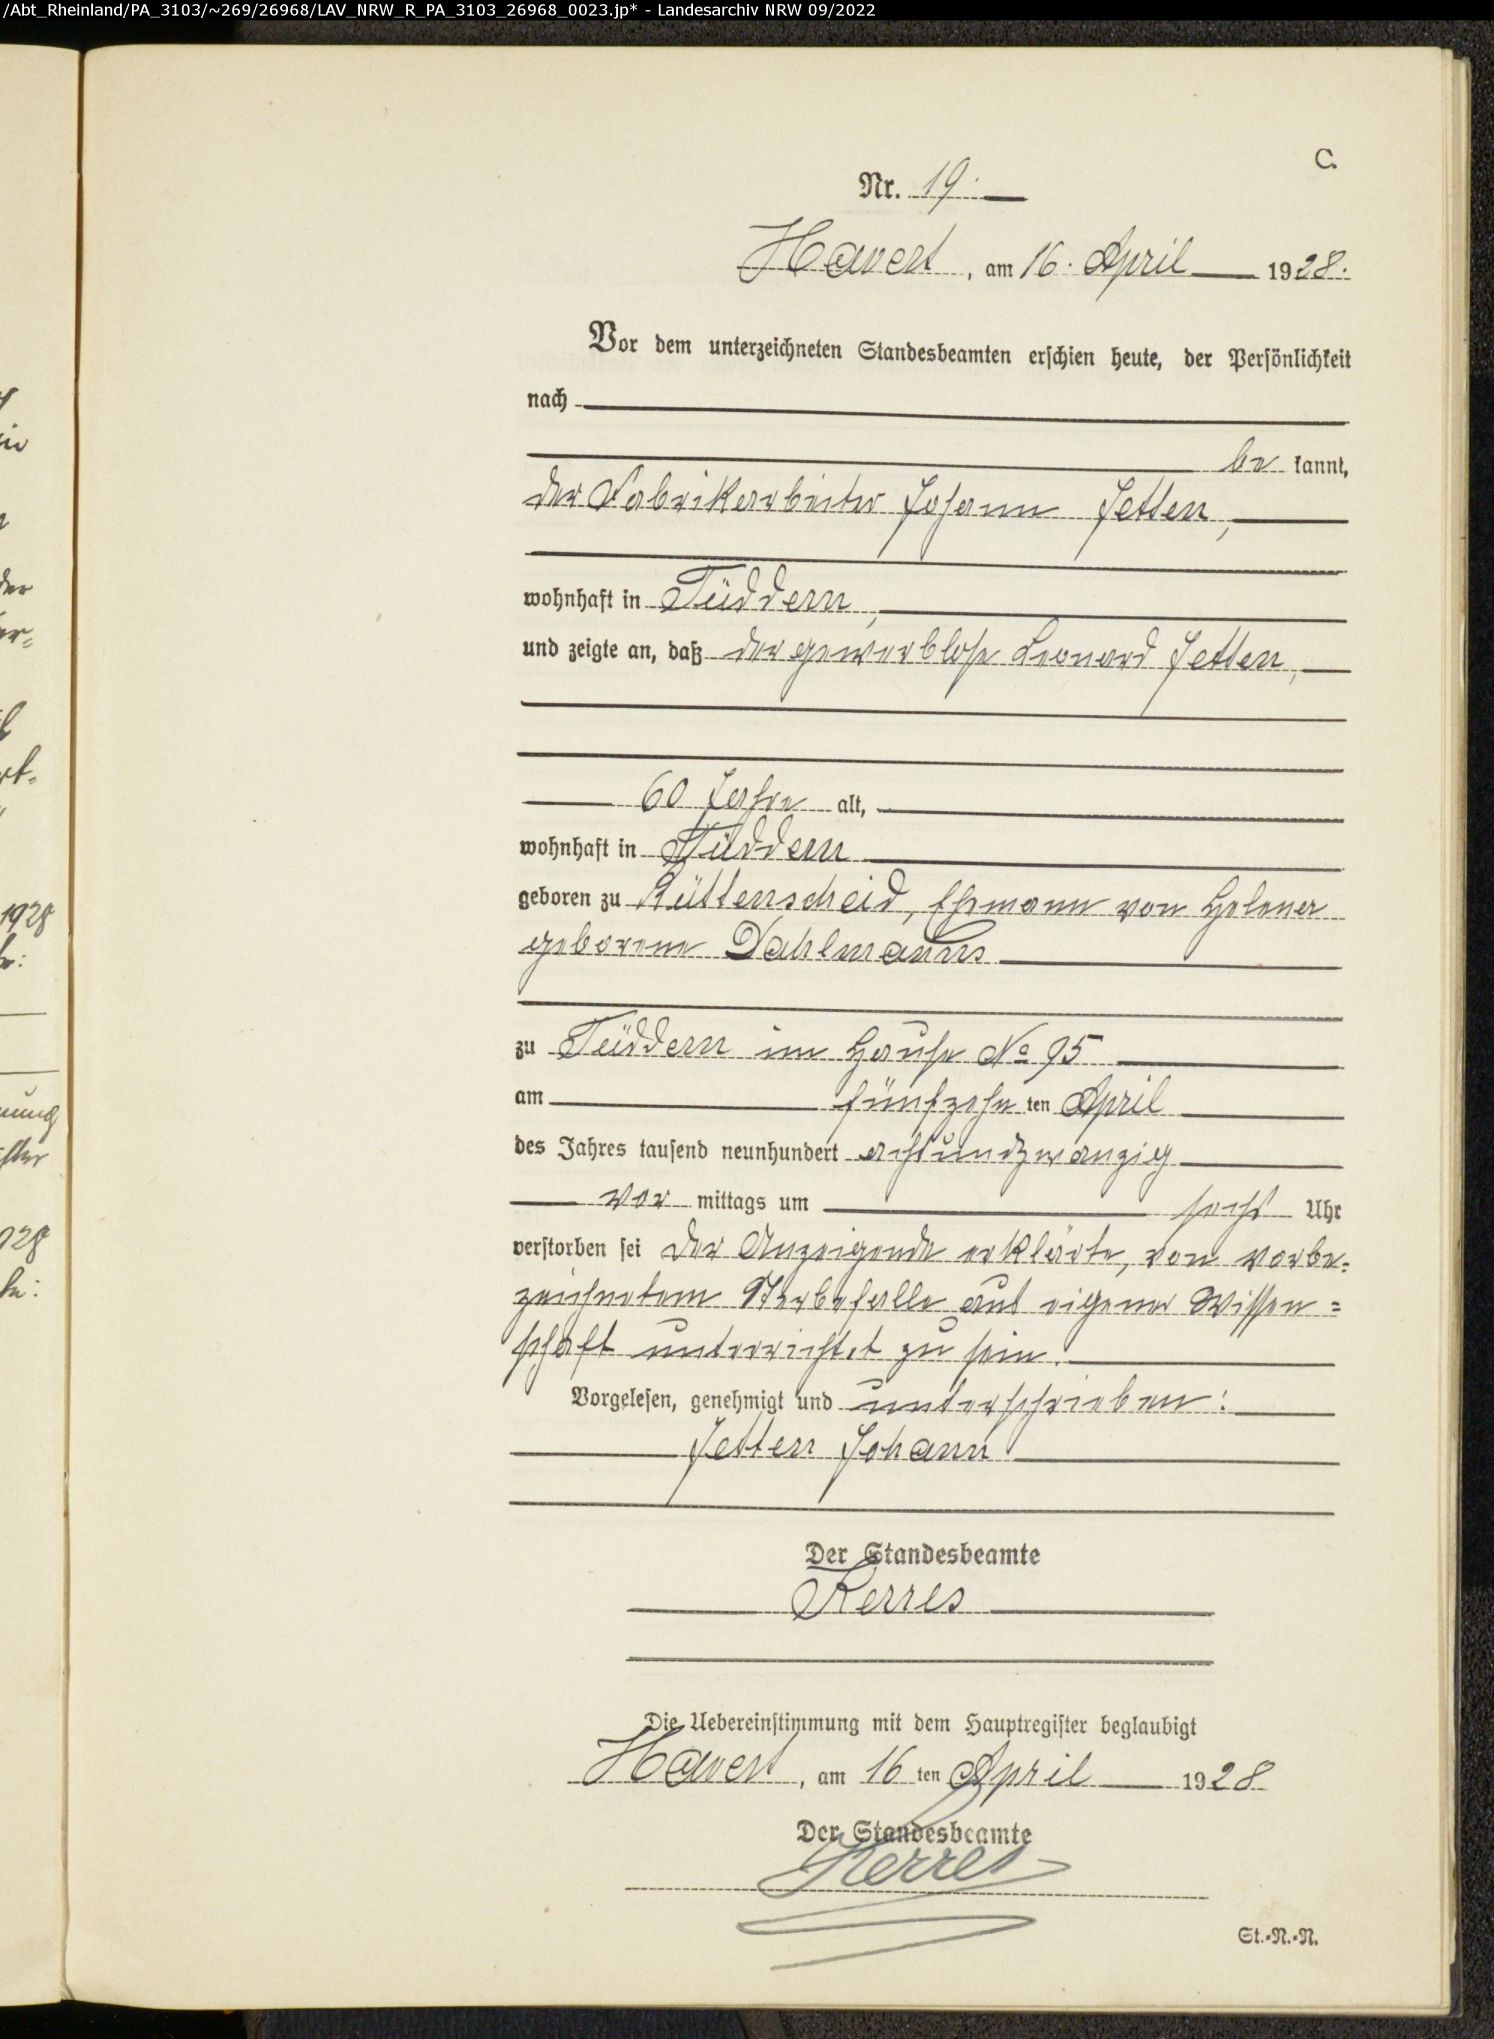 /Abt_Rheinland/PA_3103/~269/26968/LAV_NRW_R_PA_3103_26968_0023.jp* - Landesarchiv NRW 09/2022
C.
Nr. 19.
Havert, am 16. April 1928.
Vor dem unterzeichneten Standesbeamten erschien heute, der Persönlichkeit
nach
be kannt,
der Fabrikarbeiter Johann Jetten,
wohnhaft in Tüddern,
und zeigte an, daß der gewerblose Leonard Jetten,
60 Jahre alt,
wohnhaft in Tüddern
geboren zu Rüttenscheid, Ehemann von Helena
geborene Dahlmanns
zu Tüddern im Hause No 95
am fünfzehn ten April
des Jahres tausend neunhundert achtundzwanzig
vor mittags um sechs Uhr
verstorben sei der Anzeigende erklärte, von vorbe=
zeichnetem Sterbefalle aus eigener Wissen=
schaft unterrichtet zu sein.
Vorgelesen, genehmigt und unterschrieben:
Jetten Johann
Der Standesbeamte
Kerres
Die Uebereinstimmung mit dem Hauptregister beglaubigt
Havert, am 16 ten April 1928
Der Standesbeamte
Kerres
St.-N.-N.
1928